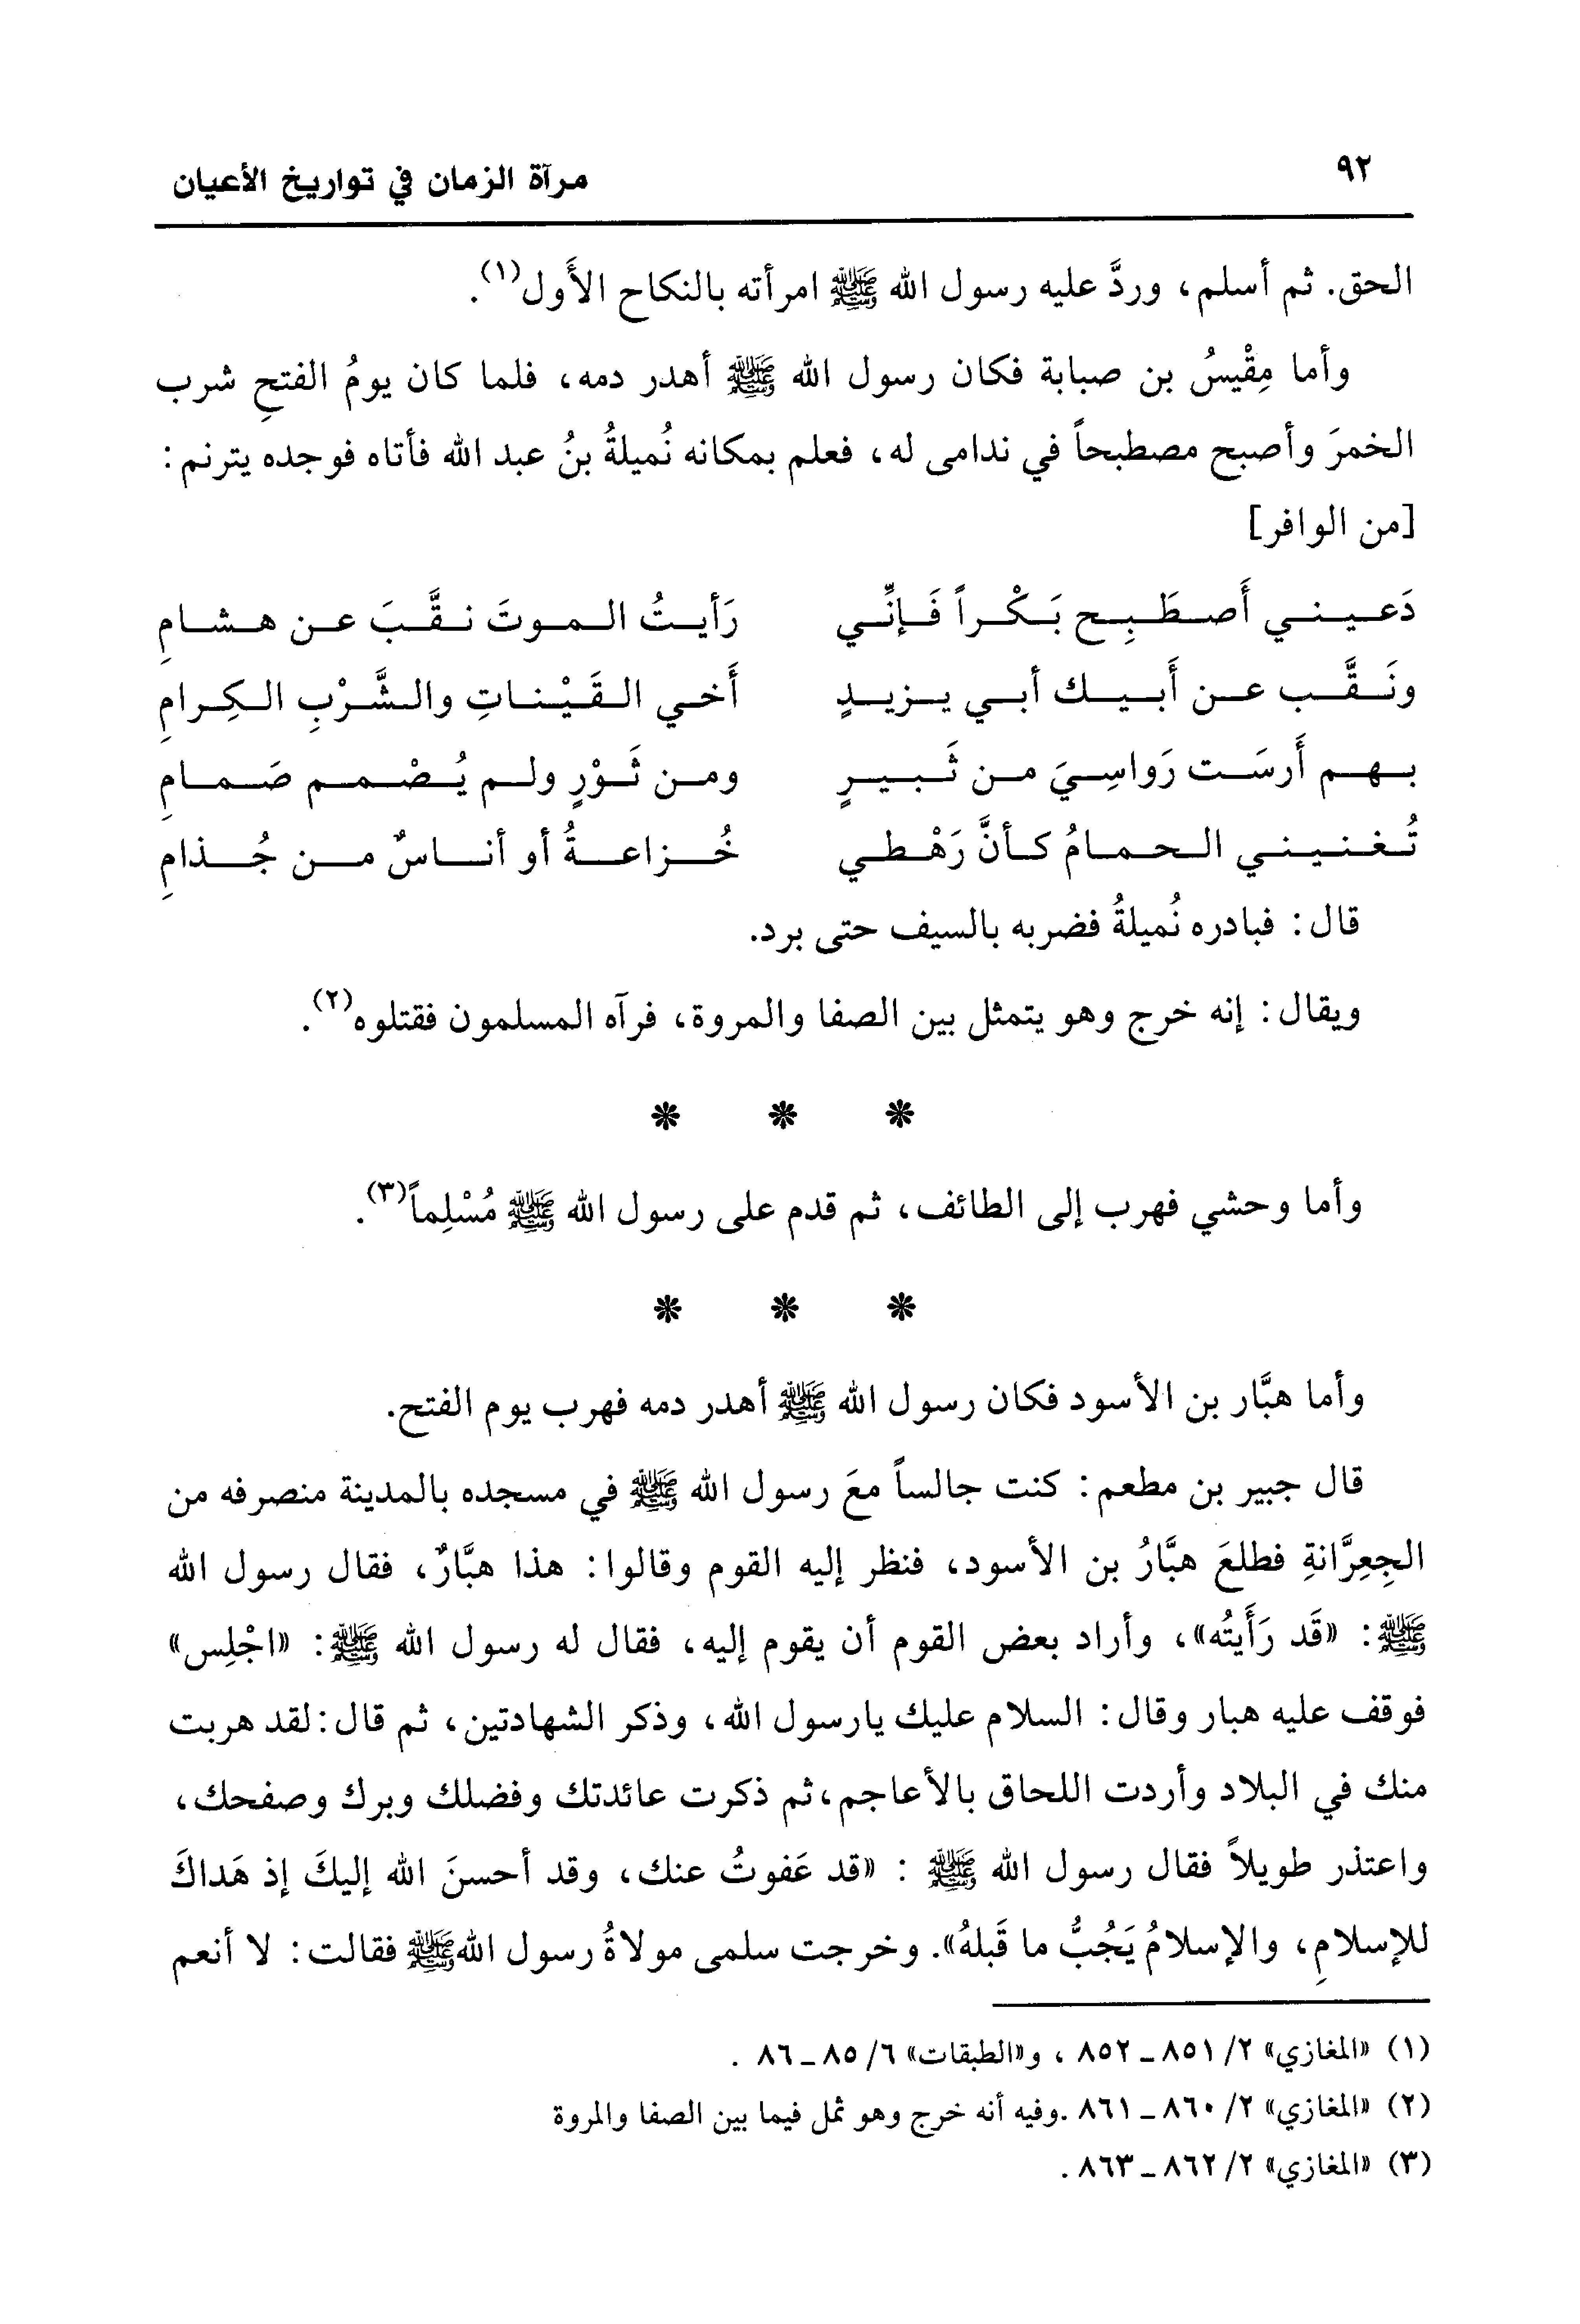 ٩٢
مرآة الزمان في تواريخ الأعيان
الحق. ثم أسلم، وردَّ عليه رسول الله ﷺ امرأته بالنكاح الأَول(١).
وأما مِقْيسُ بن صبابة فكان رسول الله ﷺ أهدر دمه، فلما كان يومُ الفتحِ شرب
الخمرَ وأصبح مصطبحاً في ندامى له، فعلم بمكانه نُميلةُ بنُ عبد الله فأتاه فوجده يترنم:
[من الوافر]
دَعيني أَصطَبِح بَكْراً فَإنِّي رَأيتُ الموتَ نقَّبَ عن هشامِ
ونَقَّب عن أَبيك أبي يزيدٍ أَخي القَيْناتِ والشَّرْبِ الكِرامِ
بهم أَرسَت رَواسِيَ من ثَبيرٍ ومن ثَوْرٍ ولم يُصْمم صَمامِ
تُغنيني الحمامُ كأنَّ رَهْطي خُزاعةُ أو أناسٌ من جُذامِ
قال: فبادره نُميلةُ فضربه بالسيف حتى برد.
ويقال: إنه خرج وهو يتمثل بين الصفا والمروة، فرآه المسلمون فقتلوه(٢).
* * *
وأما وحشي فهرب إلى الطائف، ثم قدم على رسول الله ﷺ مُسْلِماً(٣).
* * *
وأما هبَّار بن الأسود فكان رسول الله ﷺ أهدر دمه فهرب يوم الفتح.
قال جبير بن مطعم: كنت جالساً معَ رسول الله ﷺ في مسجده بالمدينة منصرفه من
الجِعِرَّانةِ فطلعَ هبَّارُ بن الأسود، فنظر إليه القوم وقالوا: هذا هبَّارٌ، فقال رسول الله
ﷺ: «قَد رَأَيتُه»، وأراد بعض القوم أن يقوم إليه، فقال له رسول الله ﷺ: «اجْلِس»
فوقف عليه هبار وقال: السلام عليك يارسول الله، وذكر الشهادتين، ثم قال:لقد هربت
منك في البلاد وأردت اللحاق بالأعاجم،ثم ذكرت عائدتك وفضلك وبرك وصفحك،
واعتذر طويلاً فقال رسول الله ﷺ : «قد عَفوتُ عنك، وقد أحسنَ الله إليكَ إذ هَداكَ
للإسلامِ، والإسلامُ يَجُبُّ ما قَبلهُ». وخرجت سلمى مولاةُ رسول اللهﷺ فقالت: لا أنعم
(١) «المغازي» ٢/ ٨٥١ ـ ٨٥٢ ، و«الطبقات» ٦/ ٨٥ ـ ٨٦ .
(٢) «المغازي» ٢/ ٨٦٠ ـ ٨٦١ .وفيه أنه خرج وهو ثمل فيما بين الصفا والمروة
(٣) «المغازي» ٢/ ٨٦٢ ـ ٨٦٣ .